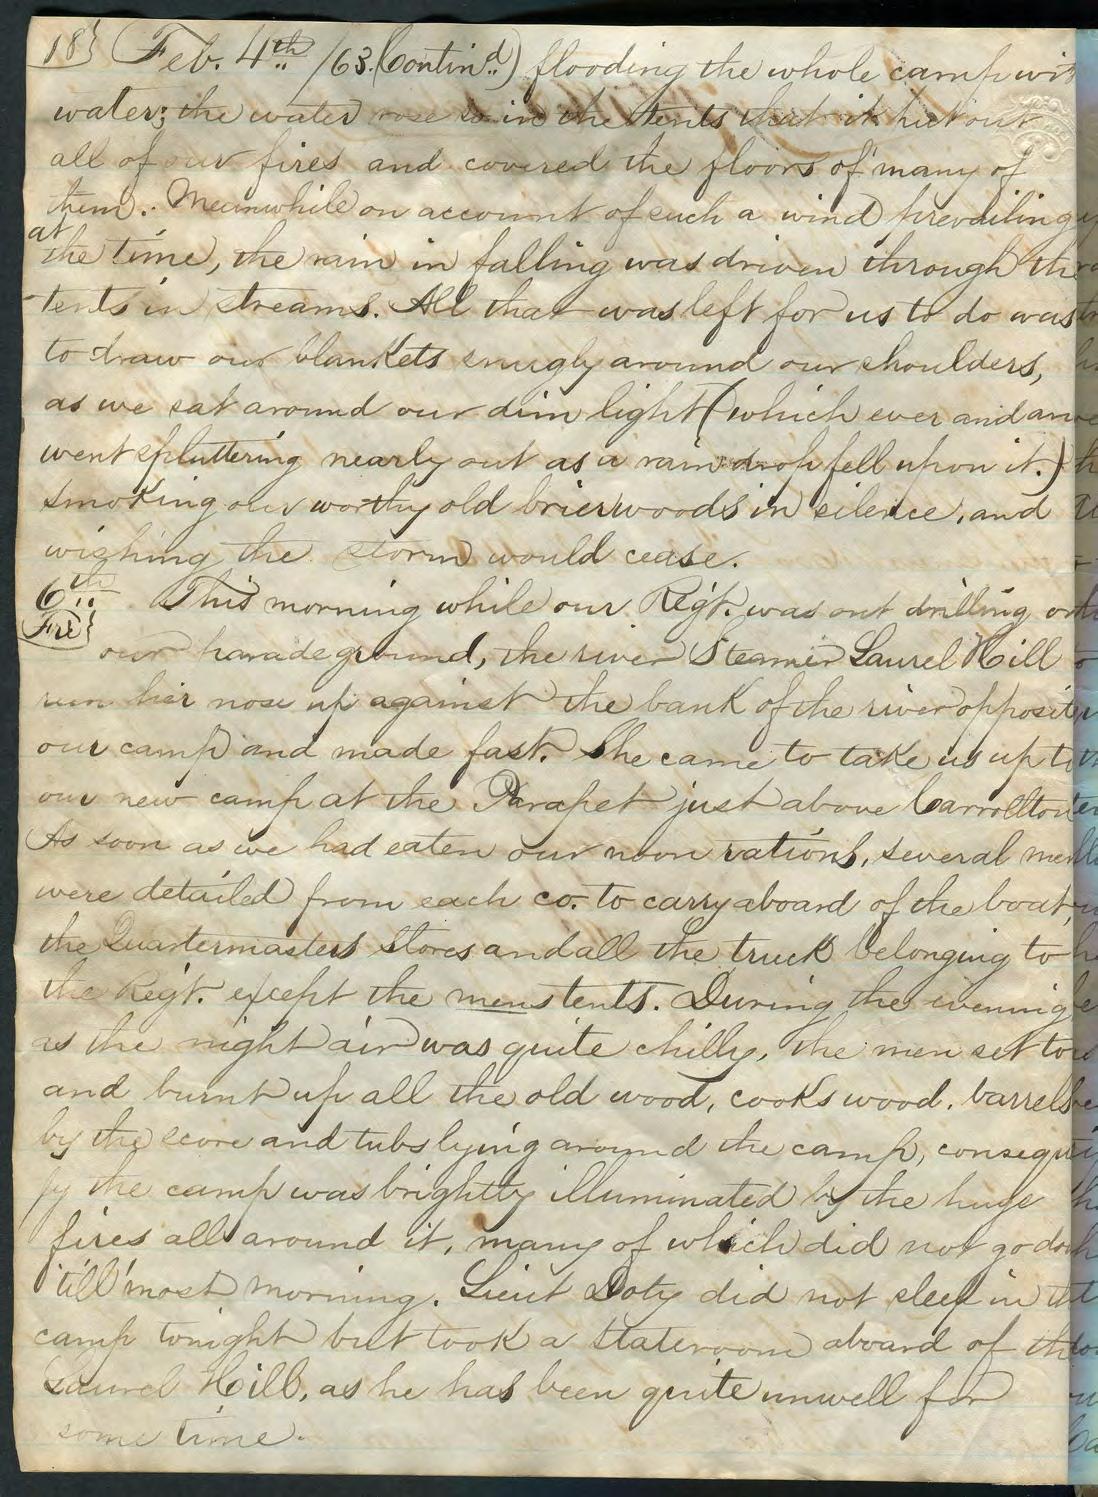 18} Feb. 4th /63. (Contin'd) flooding the whole camp wit
water; the water rose so in the tents that it put out
all of our fires and covered the floors of many of
them. Meanwhile on account of such a wind prevailing
at
the time, the rain in falling was driven through the
tents in streams. All that was left for us to do was
to draw our blankets snugly around our shoulders,
as we sat around our dim light (which ever and anon
went spluttering nearly out as a raindrop fell upon it.)
smoking our worthy old brierwoods in silence, and
wishing the storm would cease.
6th This morning while our Regt. was out drilling on
Fri} our parade ground, the river Steamer Laurel Hill
run her nose up against the bank of the river opposite
our camp and made fast. She came to take us up to
our new camp at the Parapet just above Carrollton
As soon as we had eaten our noon rations, several men
were detailed from each co. to carry aboard of the boat,
the Quartermasters Stores and all the truck belonging to
the Regt. except the mens tents. During the evening
as the night air was quite chilly, the men set to
and burnt up all the old wood, cooks wood, barrels
by the score and tubs lying around the camp, consequt
ly the camp was brightly illuminated by the huge
fires all around it, many of which did not go down
'till most morning. Lieut Doty did not sleep in
camp tonight but took a stateroom aboard of the
Laurel Hill, as he has been quite unwell for
some time.